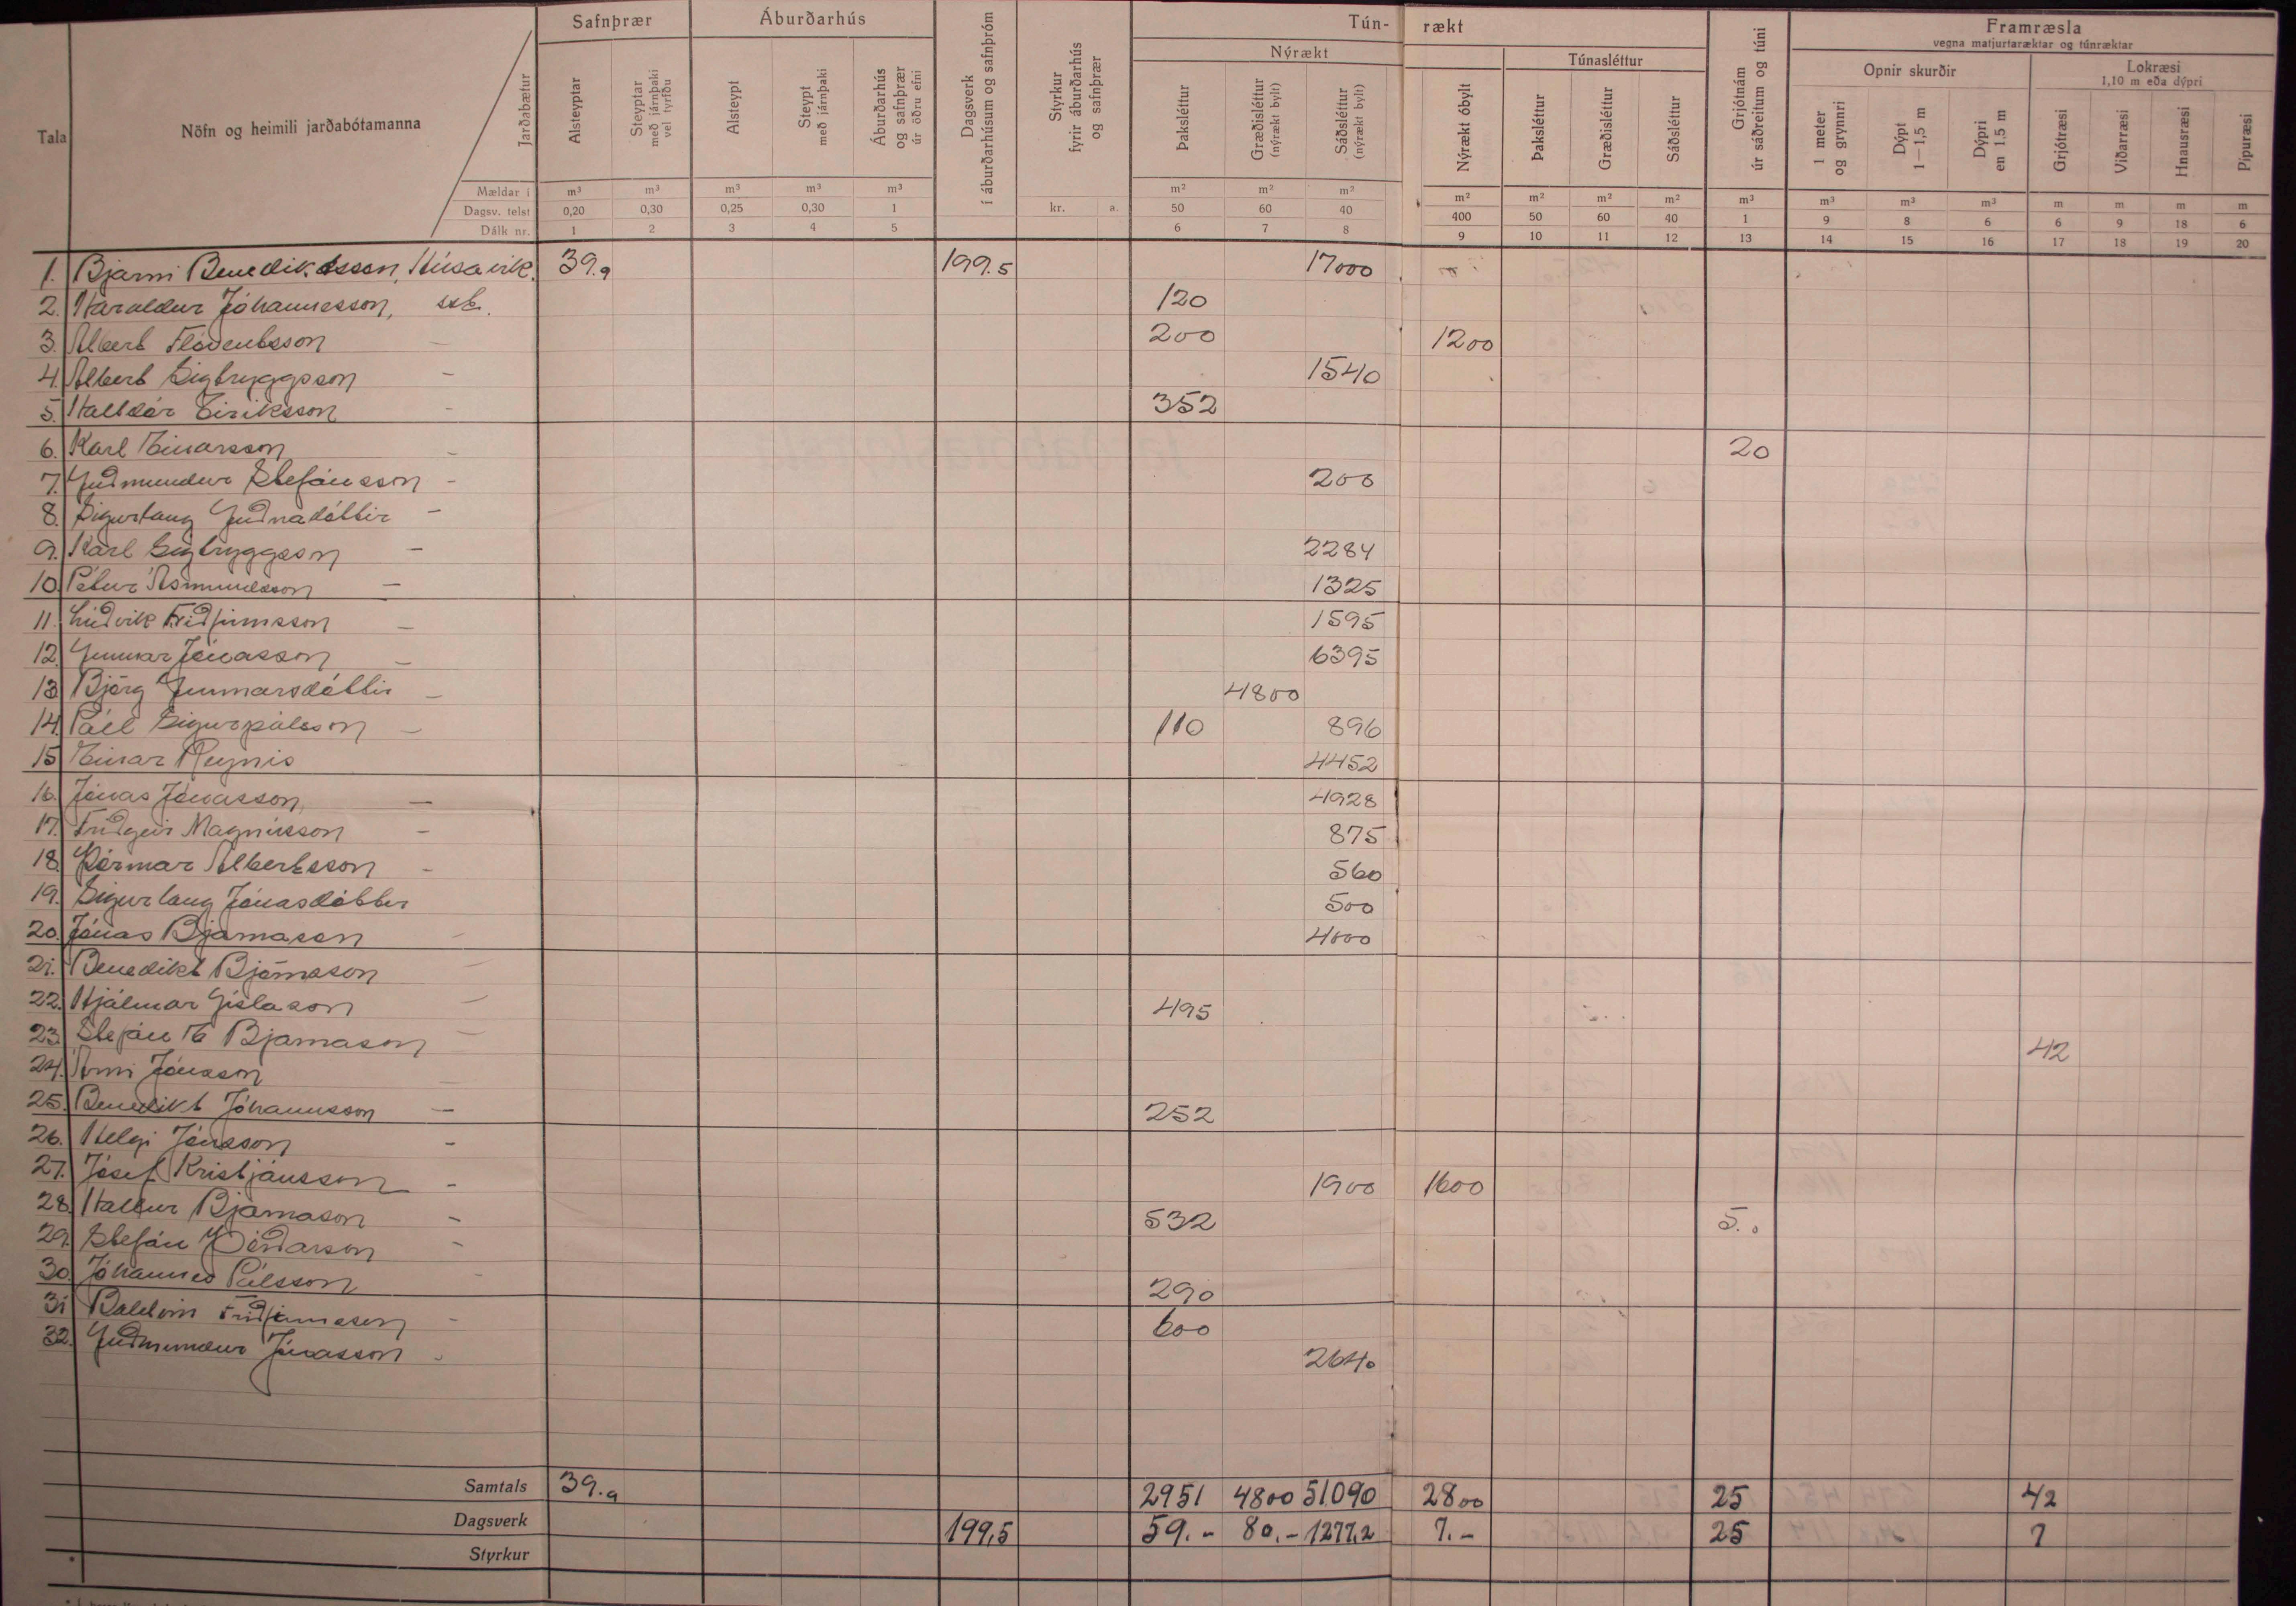 Safnþrær Áburðarhús Dagsverk í áburðarhúsum og safnþróm Styrkur fyrir áburðarhús og safnþrær Tún- rækt Grjótnám úr sáðreitum og túni Framræsla
vegna matjurtaræktar og túnræktar
Nýrækt Túnasléttur Opnir skurðir Lokræsi 1,10 m eða dýpri
Tala Nöfn og heimili jarðabótamanna Jarðabætur Alsteyptar Steyptar með járnþaki vel tyrfðu Alsteypt Steypt með járnþaki Áburðarhús og safnþrær úr öðru efni Þaksléttur Græðisléttur (nýrækt bylt) Sáðsléttur (nýrækt bylt) Nýrækt óbylt Þaksléttur Græðisléttur Sáðsléttur 1 meter og grynnri Dýpt 1—1,5 m Dýpri en 1,5 m Grjótræsi Viðarræsi Hnausræsi Pípuræsi
Mældar í m³ m³ m³ m³ m³ m² m² m² m² m² m² m² m³ m³ m³ m³ m m m m
Dagsv. telst 0,20 0,30 0,25 0,30 1 kr. a. 50 60 40 400 50 60 40 1 9 8 6 6 9 18 6
Dálk nr. 1 2 3 4 5 6 7 8 9 10 11 12 13 14 15 16 17 18 19 20
1. Bjarni Benediktsson, Húsavík. 39.9 199.5 17000
2. Haraldur Jóhannesson, 120
3. Albert Flóventsson — 200 1200
4. Albert Sigtryggsson — 1540
5. Halldór Eiríksson - 352
6. Karl Einarsson - 20
7. Guðmundur Stefánsson - 200
8. Sigurlaug Guðnadóttir -
9. Karl Sigtryggsson — 2284
10. Pétur Ásmundsson — 1325
11. Lúðvík Friðfinnsson — 1595
12. Gunnar Jónasson — 6395
13. Björg Gunnarsdóttir — 4800
14. Páll Sigurpálsson — 110 896
15 Einar Reynis 4452
16. Jónas Jónasson, — 4928
17. Friðgeir Magnússon - 875
18. Þórmar Albertsson - 560
19. Sigurlaug Jónasdóttir 500
20. Jónas Bjarnason - 4000
21. Benedikt Bjarnason —
22. Hjálmar Gíslason — 495
23. Stefán E Bjarnason — 42
24. Árni Jónsson —
25. Benedikt Jóhannsson — 252
26. Helgi Jónsson -
27. Jósef Kristjánsson - 1900 1600
28. Hallur Bjarnason - 532 5.0
29. Stefán Þórðarson -
30. Jóhannes Pálsson - 290
31 Baldvin Friðfinnsson - 600
32. Guðmundur Jónasson - 2640
Samtals 39.9 2951 4800 51090 2800 25 42
Dagsverk 199,5 59.- 80.- 1277,2 7.- 25 7
Styrkur